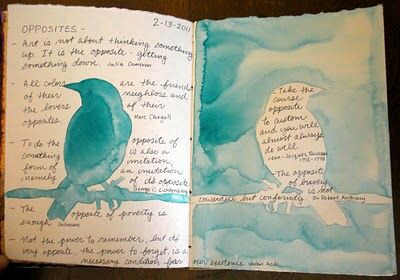 OPPOSITES -
2-13-2011
- Art is not about thinking something
up. It is the opposite - getting
something down. Julia Cameron
- All colors are the friends
of their neighbors and
the lovers of their
opposites. Marc Chagall
- To do the opposite of
something is also a
form of imitation,
namely an imitation
of its opposite
George C. Lichtenberg
- The opposite of poverty is
enough unknown
- Not the power to remember, but its
very opposite, the power to forget, is a
necessary condition for
Take the
course
opposite
to custom
and you will
almost always
do well
Jean-Jacques Rousseau
1712-1778
- The opposite
of bravery
is not
cowardice but conformity. Dr Robert Anthony
our existence Sholem Asch